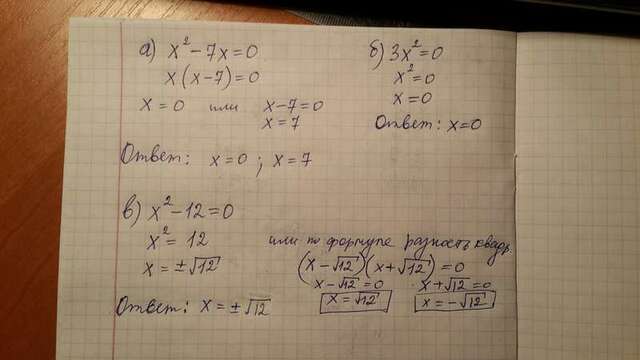 а) x² - 7x = 0
x(x-7) = 0
x = 0 или x-7=0
x = 7
Ответ: x = 0 ; x = 7
б) 3x² = 0
x² = 0
x = 0
Ответ: x = 0
в) x² - 12 = 0
x² = 12
x = ±√12
Ответ: x = ±√12
или по формуле разность квадр.
(x - √12)(x + √12) = 0
x - √12 = 0 x + √12 = 0
x = √12 x = -√12